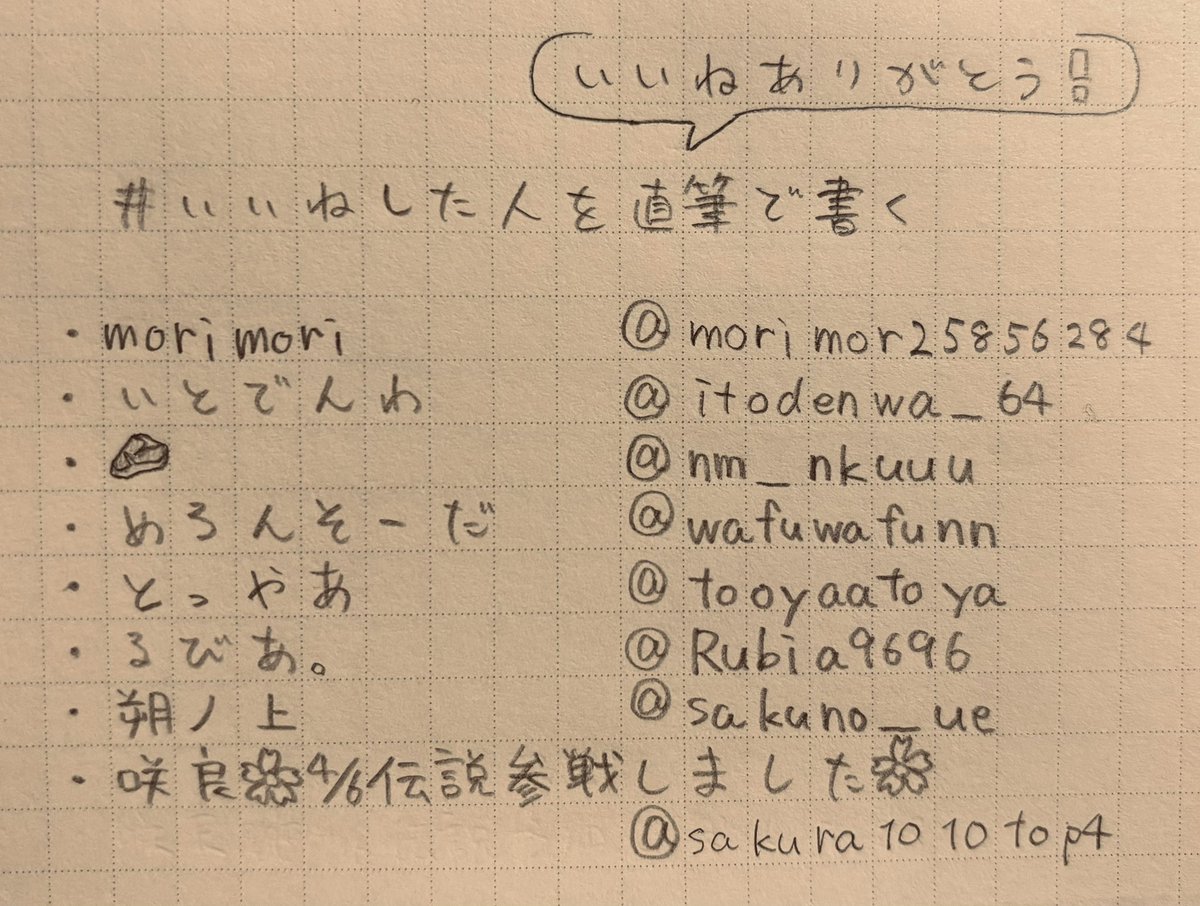 いいねありがとう!
#いいねした人を直筆で書く
・morimori @morimor25856284
・いとでんわ @itodenwa_64
・🪨 @nm_nkuuu
・めろんそーだ @wafuwafunn
・とっやあ @tooyaatoya
・るびあ。 @Rubia9696
・朔ノ上 @sakuno_ue
・咲良🌸4/6伝説参戦しました🌸
@sakura1010top4